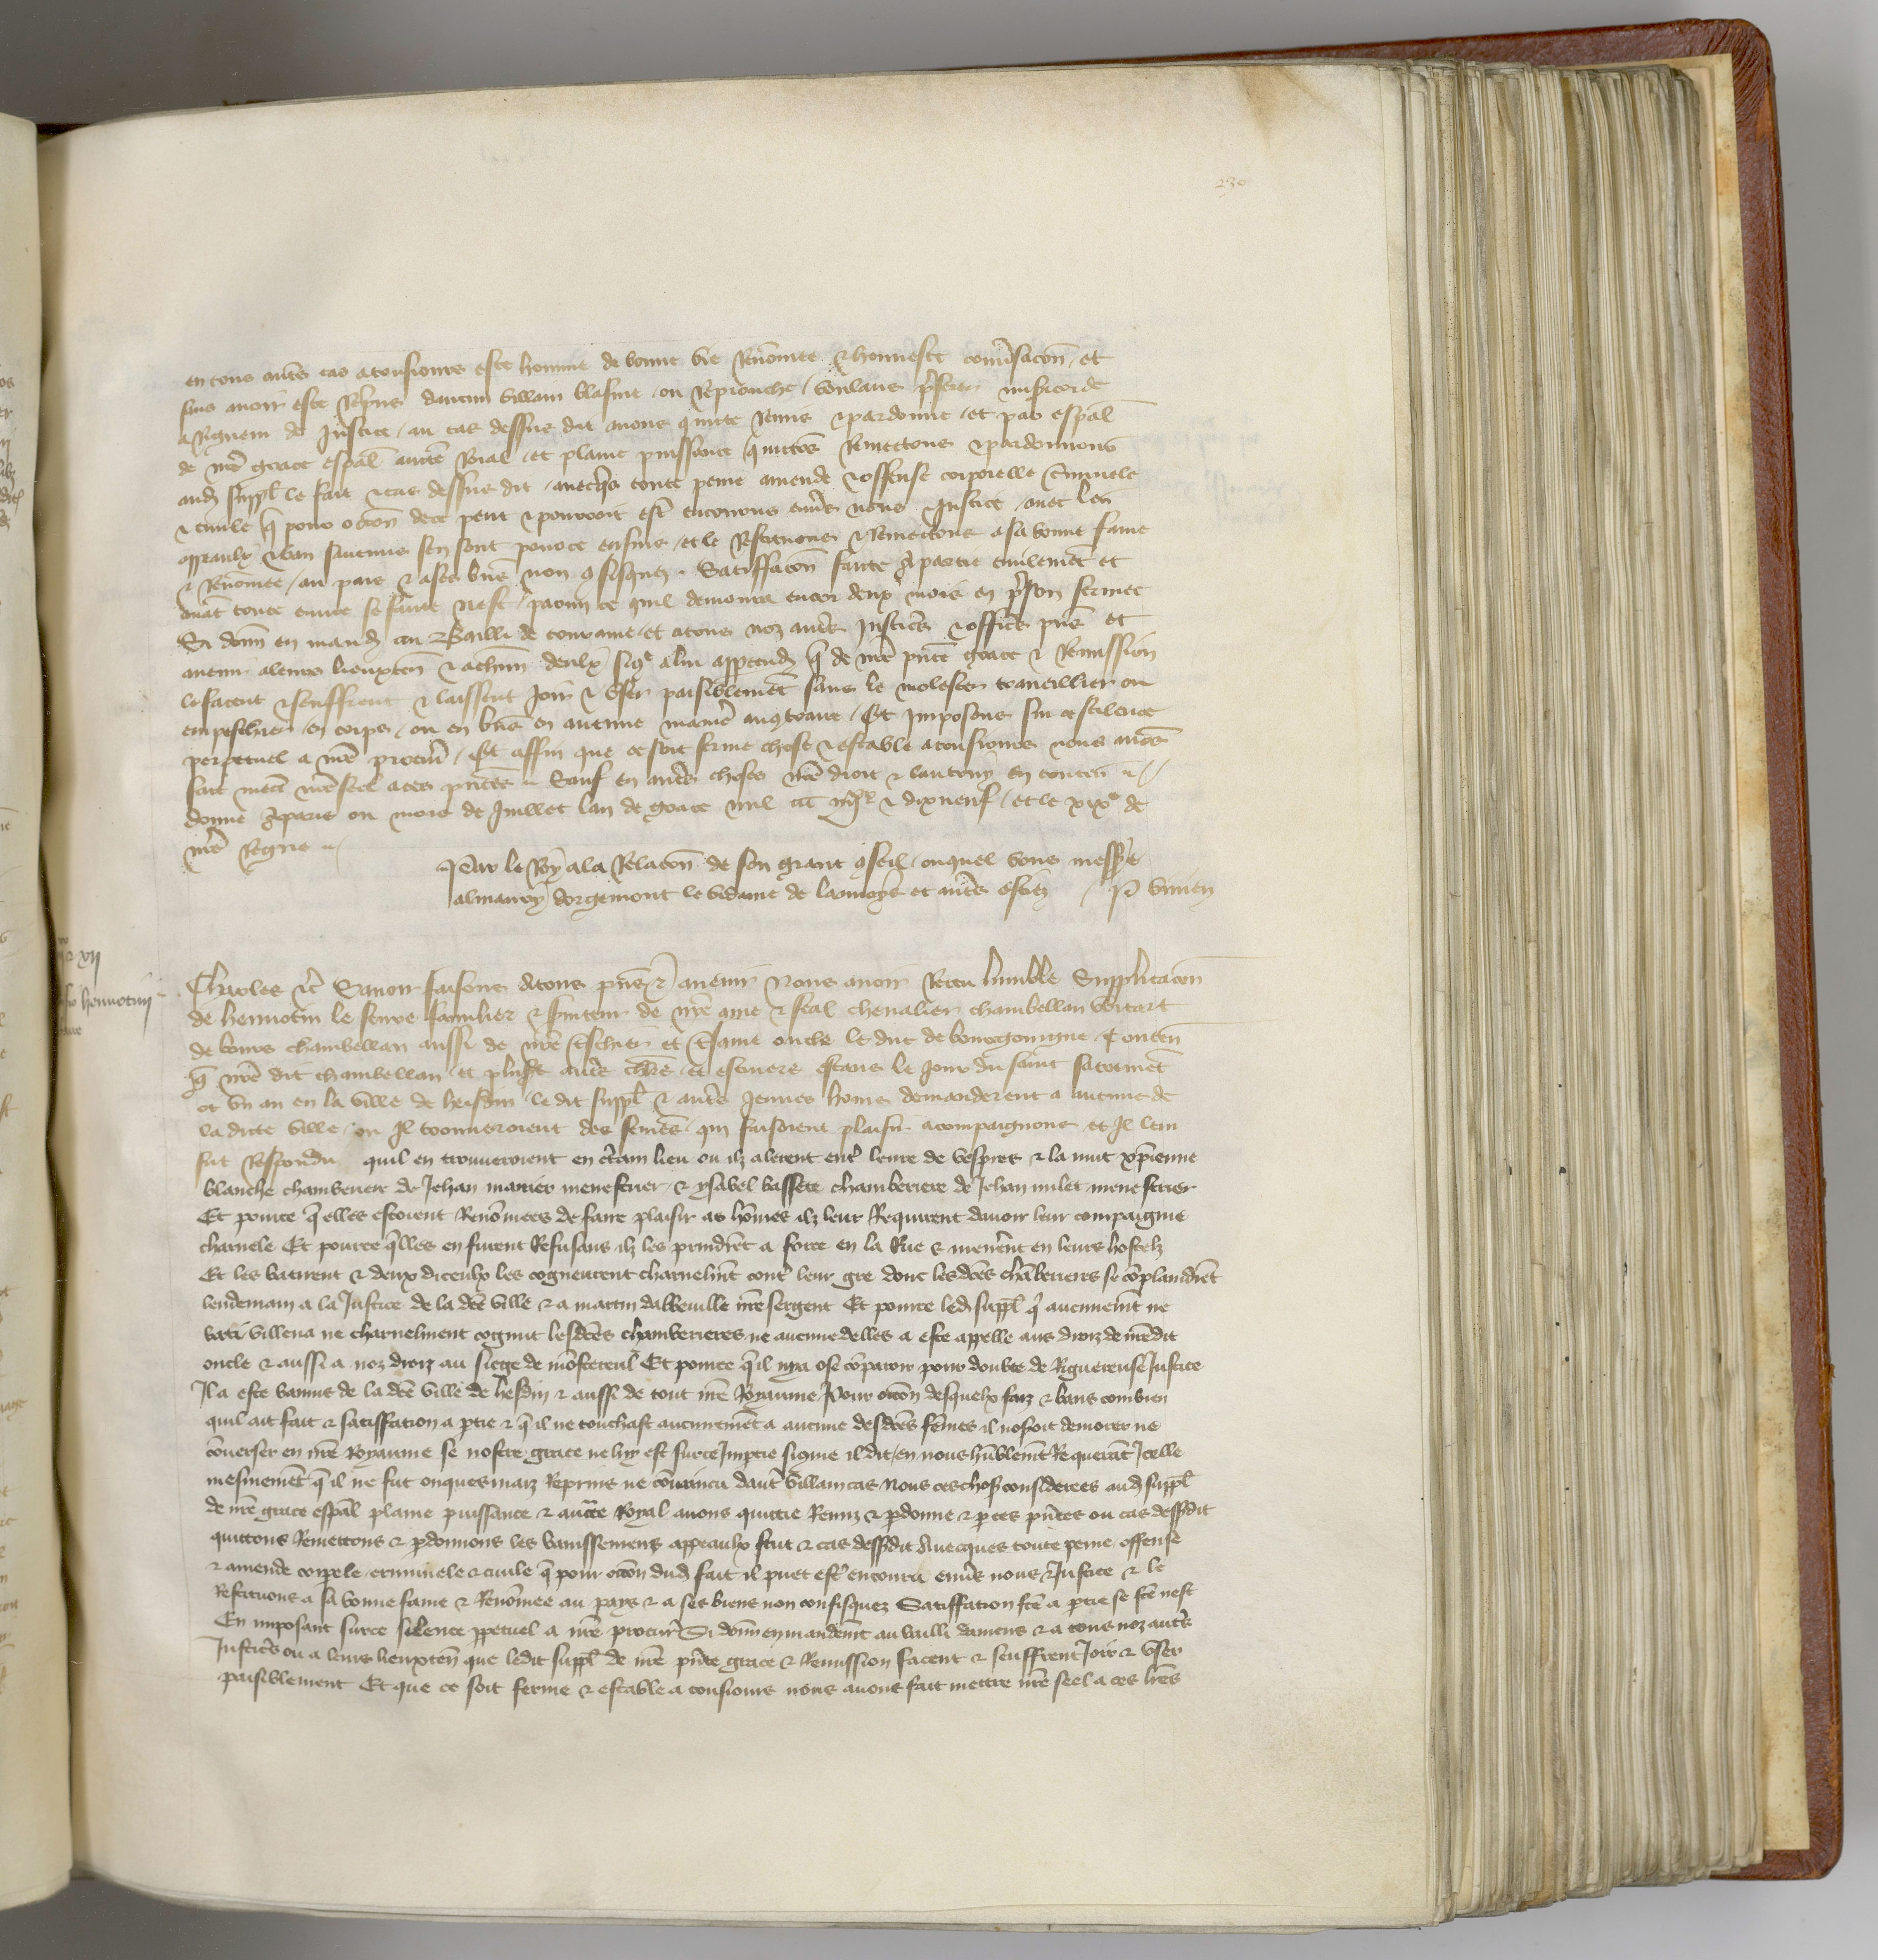 230
en tous autres cas a tousiours este homme de bonne vie Renōmee & honneste conūsacōn / et
sans auoir este Reprins daucun villain blasme ou Reprouche / voulans pferer misericorde
a Rigueur de Justice / au cas dessus dit auons quitte Remis & pardonne / et par espāl
de nrē grace espāl auctē Roial et plaine puissance quittōs Remettons & pardonnons
aud suppl le fait & cas dessus dit / auecqs toute peine amende & offense corporelle Criminele
& ciuile q̄ pour occōn dece peut & pourroit estr encourus enuers nous & Justice / auec les
appeaulx & ban saucuns sen sont pource ensuis / et le Restituons & Remectons a sa bonne fame
& Renōmee / au pais & a ses biēs non ɔfisquez . Satiffacōn faicte a partie ciuilemēt et
auāt toute euure se faicte nest / parmi ce quil demourra encor deux mois en pson fermee
Si donn en mand au Bailli de touraine / et a tous noz autrēs Justicrs & officrs pns et
auenir a leurs lieuxten & a chūn deulx sicōe a lui apptendr q̄ de nrē pn̄te grace & Remission
le facent & seuffrent & laissent Joir & vser paisiblemēt sans le molester trauaillier ou
empeschier en corps / ou en biēs en aucune maniē au ɔtraire / Et Imposons sur ce scilence
perpetuel a nrē procur / Et affin que ce soit ferme chose & estable a tousiours nous auōs
fait mectr nrē seel a ces pn̄tes ~ Sauf en autrēs choses nrē droit & lautruy en toutes ~
donne a paris ou mois de Juillet lan de grace mil ccc iiijxx & dixneuf / et le xixe de
nrē Regne ~
Par le Roy a la Relacōn de son grant ɔseil / ouquel vous messirē
almaury dorgemont le vidame de laonnoys et autrēs estiez / P vrien
Charles &c Sauoir faisons A tous pns & auenir Nous auoir Receu humble Supplicacōn
de hennotin le feure familier & seruiteur de nrē ame & feal cheualier chambellan Witart
de bours chambellan aussi de nrē trescher et trsame oncle le duc de bourgoingne Contēn
q̄ nrē dit chambellan et plusrs autrēs chlrs et escuiers estans le Jour du saint sacremēt
ot vn an en la ville de hesdin le dit suppl & autrēs Jeunes homēs demanderent a aucuns de
la dicte ville ou Il trouueroient des femēs qui faisoient plaisir a compaignons et Il leur
fut Respondu quil en trouueroient en crtain lieu ou ilz alerent entr leure de vespres & la nuit xp̄ienne
blanche chamberiere de Jehan marier menestrier & ysabel bassete chamberiere de Jehan milet menestrier
Et pource q̄ elles estoient Renōmees de faire plaisir as hōmes ilz leur Requirent dauoir leur compaignie
charnele Et pource q̄lles en furent Refusans ilz les prindrēt a force en la Rue & menērent en leurs hostelz
Et les batirent & deux diceulx les cogneurent charnelmt contr leur gre donc lesdcēs chāberieres se cōplaindrēt
lendemain a la Justice de la dcē ville & a martin dabbeuille nrē sergent Et pource led suppl q̄ aucunemt ne
bati villena ne charnelment cognut lesdcēs chamberieres ne aucune delles a este appelle aus droiz de nrēdit
oncle & aussi a noz droiz au siege de mōstereul Et pource q̄ il nya ose cōparoir pour doubte de Rigueureuse Justice
Il a este bannis de la dcē ville de hesdin & aussi de tout nrē Royaume Pour occōn desquelx faiz & bans combien
quil ait fait & satiffation a ptie & q̄ il ne touchast aucunemēt a aucune desdcēs femes il noseroit demorer ne
cōuerser en nrē Royaume se nostre grace ne luy est surce Imptie sicōme il dit / en nous hūblemēt Requerāt Icelle
mesmemēt q̄ il ne fut onquesmaiz Reprins ne cōuaincu dautr villain cas Nous ces choses considerees aud suppl
de nrē grace espāl plaine puissance & auctē Royal auons quictie Remiz & pdonne & p ces pn̄tes ou cas dessdit
quittons Remettons & pdonnons les banissemens appeaulx fait & cas dessdit Auecques toute peine offense
& amende corpele criminele & ciuile q̄ pour occōn dud fait il puet estr encouru enuērs nous & Justice & le
Restituons a sa bonne fame & Renōmee au pays & a ses biens non confisquez Satiffation fcē a ptie se fcē nest
En imposant surce silence ppetuel a nrē procur Si donn en mandemt au bailli damiens & a tous noz autrēs
Justicrs ou a leurs lieuxten que ledit suppl de nrē pn̄te grace & Remission facent & seuffrent Joir & vser
paisiblement Et que ce soit ferme & estable a tousiours nous auons fait mettre nrē seel a ces lrēs